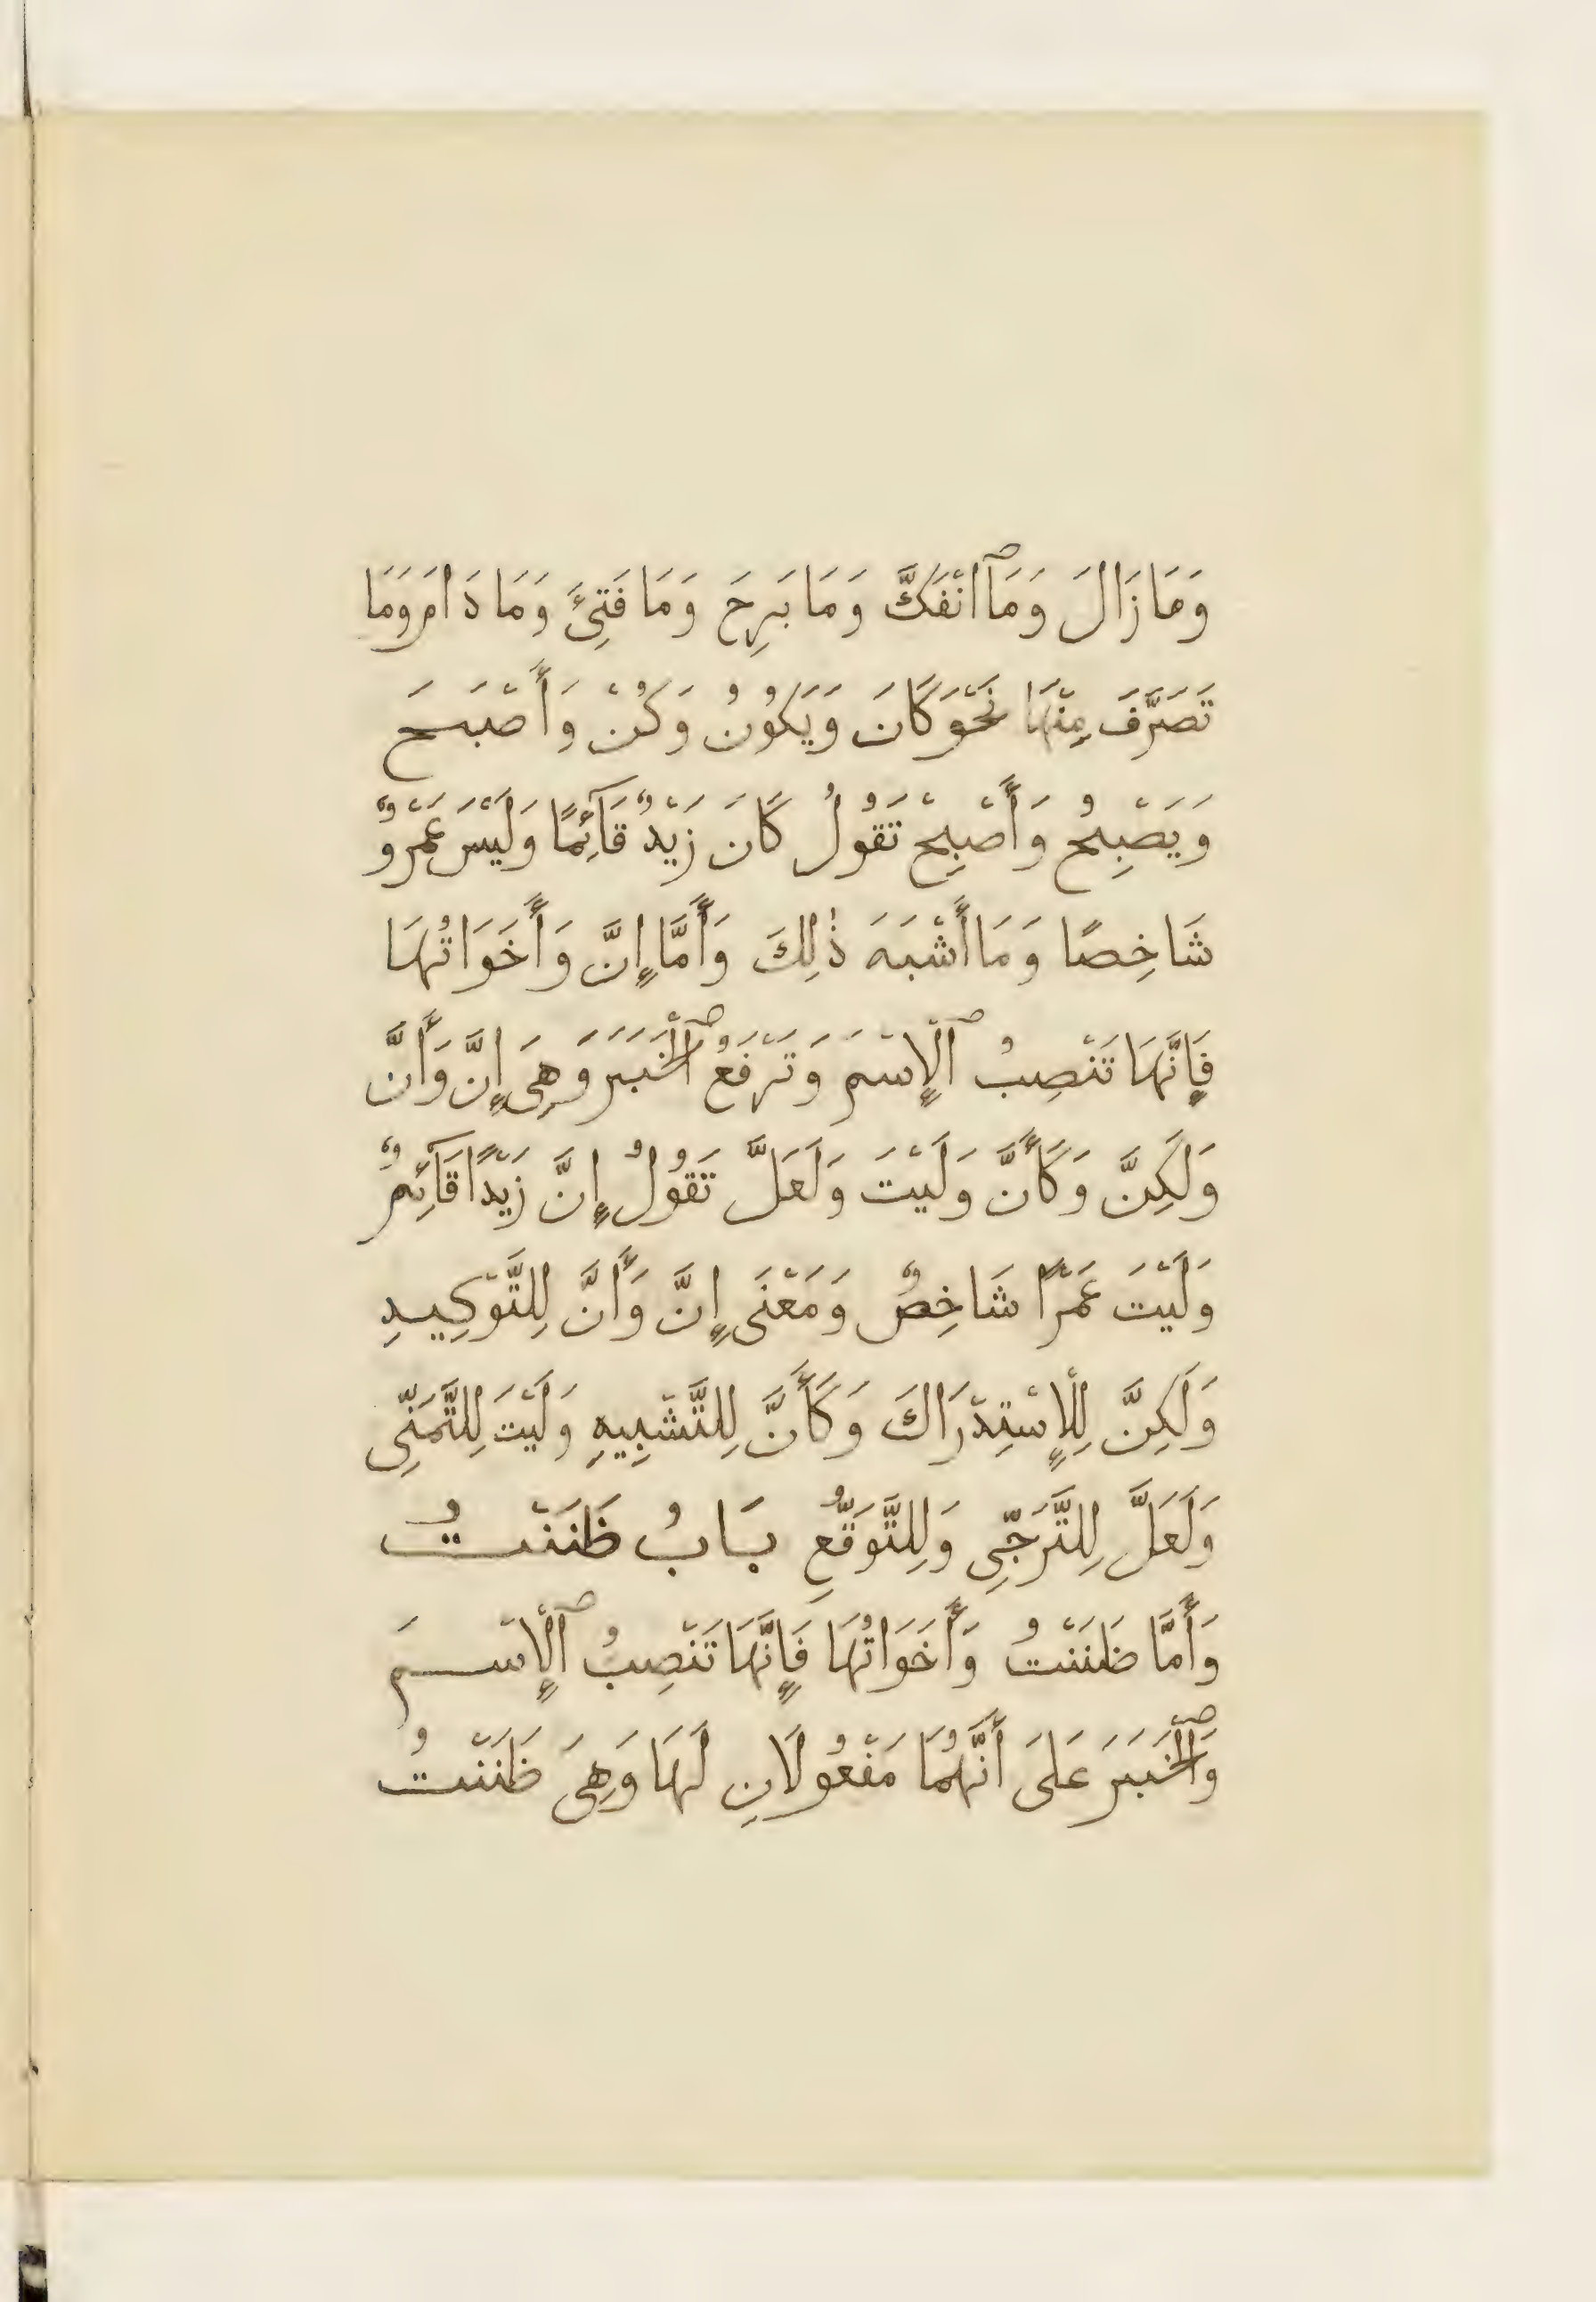 وَمَا زَالَ وَمَا ٱنْفَكَّ وَمَا بَرِحَ وَمَا فَتِئَ وَمَا دَامَ وَمَا
تَصَرَّفَ مِنْهَا نَحْوَ كَانَ وَيَكُوْنُ وَكُنْ وَأَصْبَحَ
وَيَصْبِحُ وَأَصْبِحْ تَقُوْلُ كَانَ زَيْدٌ قَآئِمًا وَلَيْسَ عَمْرٌو
شَاخِصًا وَمَا أَشْبَهَ ذٰلِكَ وَأَمَّا إِنَّ وَأَخَوَاتُهَا
فَإِنَّهَا تَنْصِبُ ٱلْإِسْمَ وَتَرْفَعُ ٱلْخَبَرَ وَهِىَ إِنَّ وَأَنَّ
وَلَكِنَّ وَكَأَنَّ وَلَيْتَ وَلَعَلَّ تَقُوْلُ إِنَّ زَيْدًا قَآئِمٌ
وَلَيْتَ عَمْرًا شَاخِصٌ وَمَعْنَى إِنَّ وَأَنَّ لِلتَّوْكِيدِ
وَلَكِنَّ لِلْإِسْتِدْرَاكَ وَكَأَنَّ لِلتَّشْبِيهِ وَلَيْتَ لِلتَّمَنِّى
وَلَعَلَّ لِلتَّرَجِّى وَلِلتَّوَقُّعِ بَابُ ظَنَنْتُ
وَأَمَّا ظَنَنْتُ وَأَخَوَاتُهَا فَإِنَّهَا تَنْصِبُ ٱلْإِسْمَ
وَٱلْخَبَرَ عَلَىَ أَنَّهُمَا مَفْعُولَانِ لَهَا وَهِىَ ظَنَنْتُ